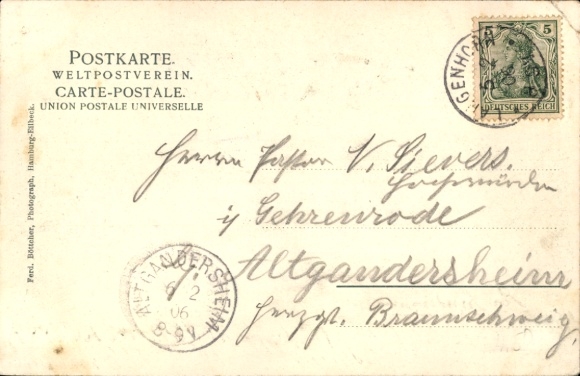 POSTKARTE.
WELTPOSTVEREIN.
CARTE-POSTALE.
UNION POSTALE UNIVERSELLE
Ferd. Böttcher, Photograph, Hamburg-Eilbeck.
5 5
DEUTSCHES REICH
Herrn Pastor V. Sievers.
Hochwürden
Gehrenrode
Altgandersheim
Herzgt. Braunschweig.
ALTGANDERSHEIM
6 2
06
8-9V